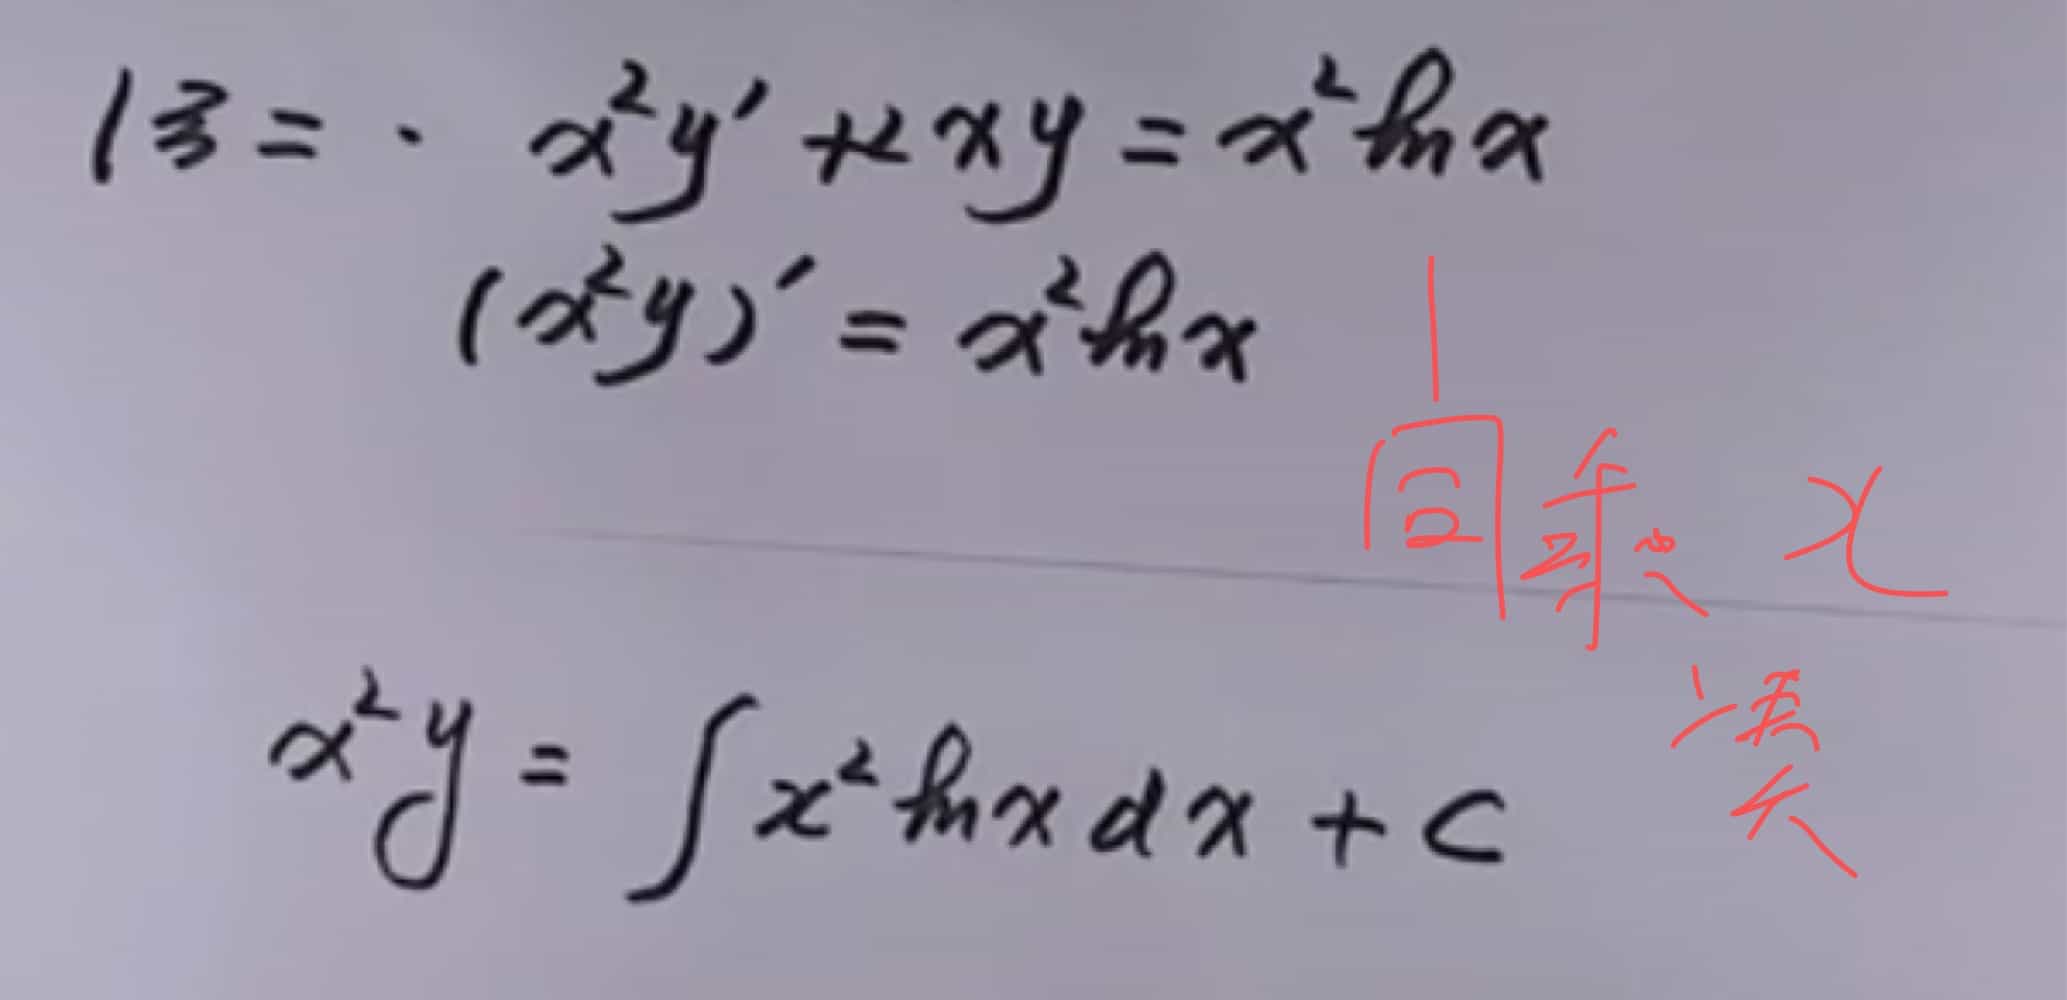 13 = · x²y′ + 2xy = x² ln x
(x²y)′ = x² ln x
同乘 x
x²y = ∫ x² ln x dx + C